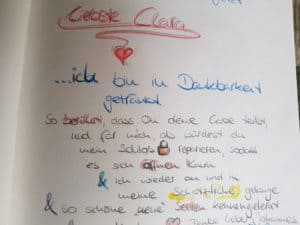 Liebste Clara
...ich bin in Dankbarkeit
getränkt.
So berührt, dass Du deine Gabe teilst
und für mich da warst
mein Schloss reparieren, sodass
es sich öffnen kann
& ich wieder an und in
meine Schatzkiste gelange
& so schöne "neue" Seiten kennengelernt
Danke lieber Johannes